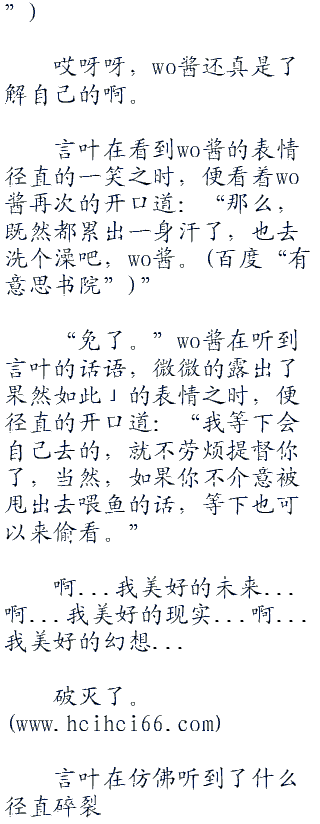 ”)
哎呀呀，wo酱还真是了
解自己的啊。
言叶在看到wo酱的表情
径直的一笑之时，便看着wo
酱再次的开口道：“那么，
既然都累出一身汗了，也去
洗个澡吧，wo酱。(百度“有
意思书院”)”
“免了。”wo酱在听到
言叶的话语，微微的露出了
果然如此」的表情之时，便
径直的开口道：“我等下会
自己去的，就不劳烦提督你
了，当然，如果你不介意被
甩出去喂鱼的话，等下也可
以来偷看。”
啊...我美好的未来...
啊...我美好的现实...啊...
我美好的幻想...
破灭了。
(www.hcihci66.com)
言叶在仿佛听到了什么
径直碎裂